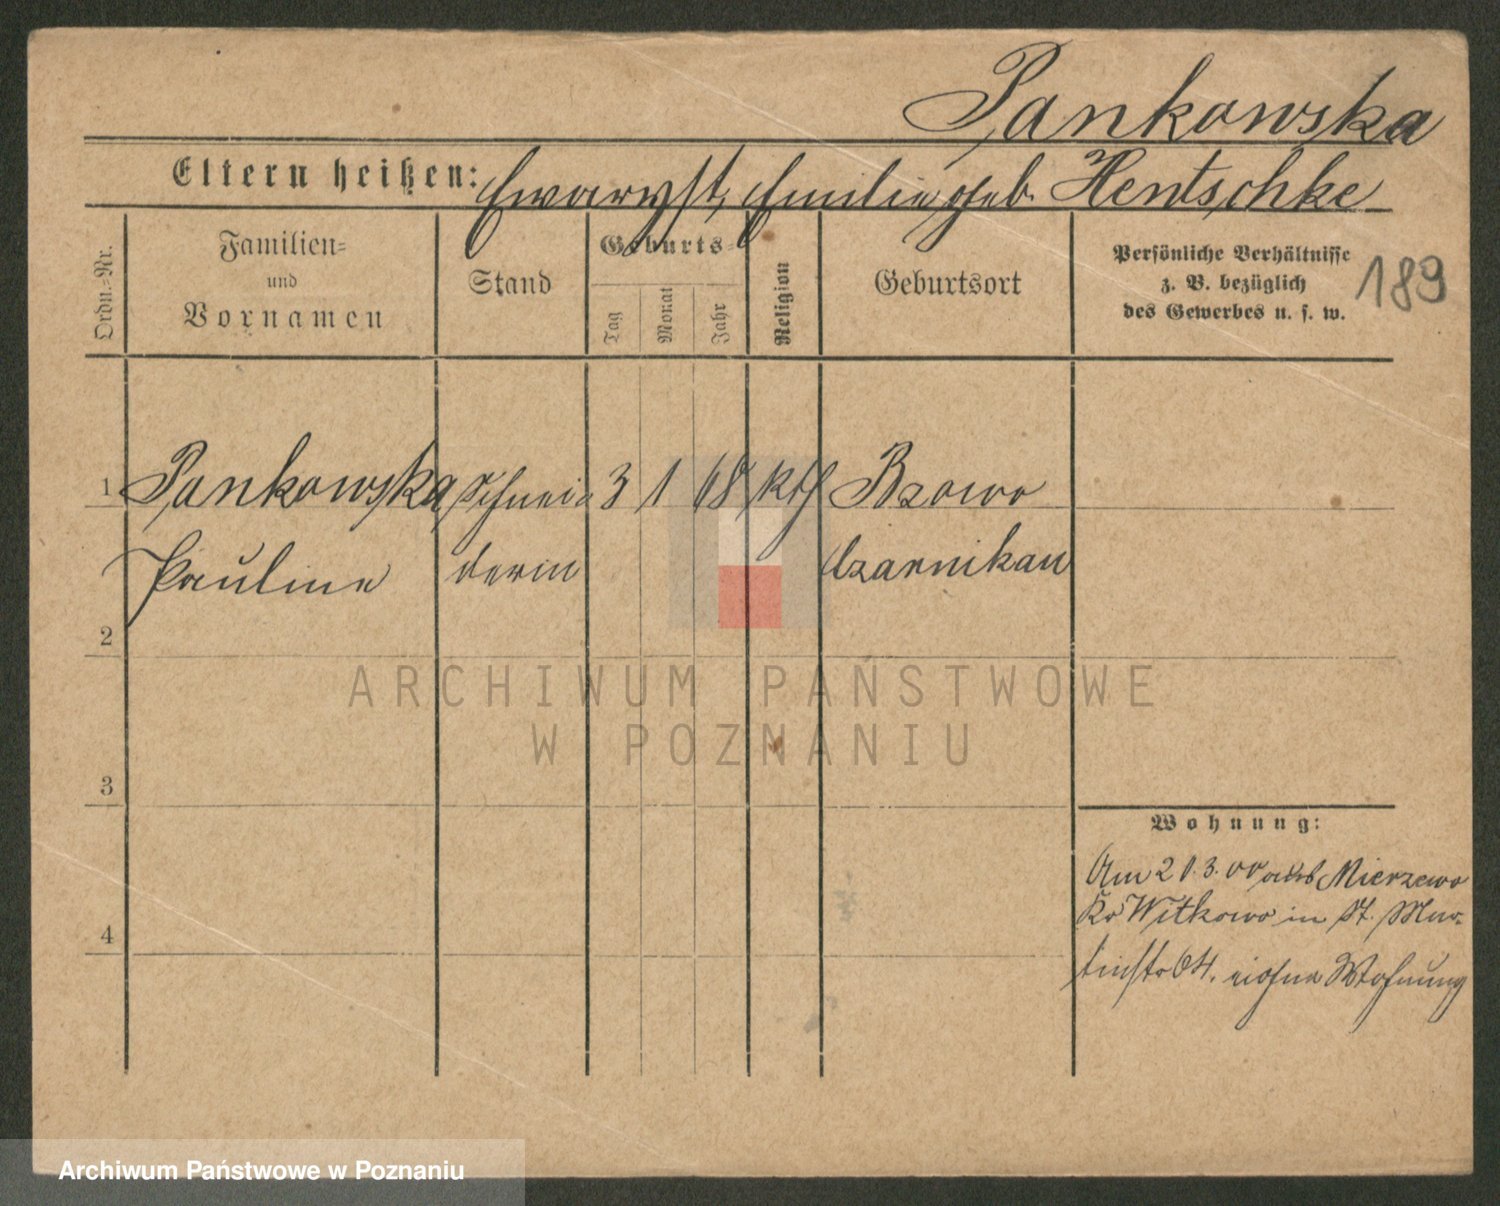 Pankowska
Eltern heißen: Ewaryst, Emilie geb. Hentschke
Ordn.=Nr.
Familien=
und
Vornamen
Stand
Geburts=
Tag
Monat
Jahr
Religion
Geburtsort
Persönliche Verhältnisse
z. B. bezüglich
des Gewerbes u. s. w.
189
1 Pankowska Schnei= 3 1 68 kth Bzowo
Pauline derin Czarnikau
2
3
4
Wohnung:
Am 21.3.00 Mierzewo
Kr Witkowo in St. Mar-
tinstr 64. eigene Wohnung
ARCHIWUM PAŃSTWOWE
W POZNANIU
Archiwum Państwowe w Poznaniu